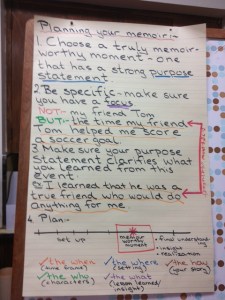 Planning your memoir:-
1. Choose a truly memoir-
worthy moment - one
that has a strong purpose
statement
2. Be specific - make sure
you have a focus
NOT:- my friend Tom
BUT:- the time my friend
Tom helped me score
a soccer goal
3. Make sure your purpose
Statement clarifies what
you learned from this
event
I learned that he was a
true friend who would do
anything for me.
4. Plan -
set up
memoir
worthy
moment
• final understanding
• insight
• realization
the when
(time frame)
the where
(setting)
the how
(your story)
the who
(characters)
the what
(lesson learned/
insight)